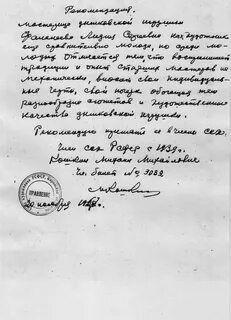 Рекомендация.
Мастерица дымковской игрушки
Фалалеева Лидия Сергеевна как художник
еще сравнительно молода, но среди мо-
лодых отличается тем, что воспринимает
традиции и опыт старших мастеров не
механически, вносит свои индивидуаль-
ные черты, свой поиск, обогащая тем
разнообразие сюжетов и художественные
качества дымковской игрушки.
Рекомендую принять ее в члены СХ.
Член СХ РСФСР с 1939 г.
Кошкин Михаил Михайлович
Чл. билет № 3032
ПРАВЛЕНИЕ
20 ноября